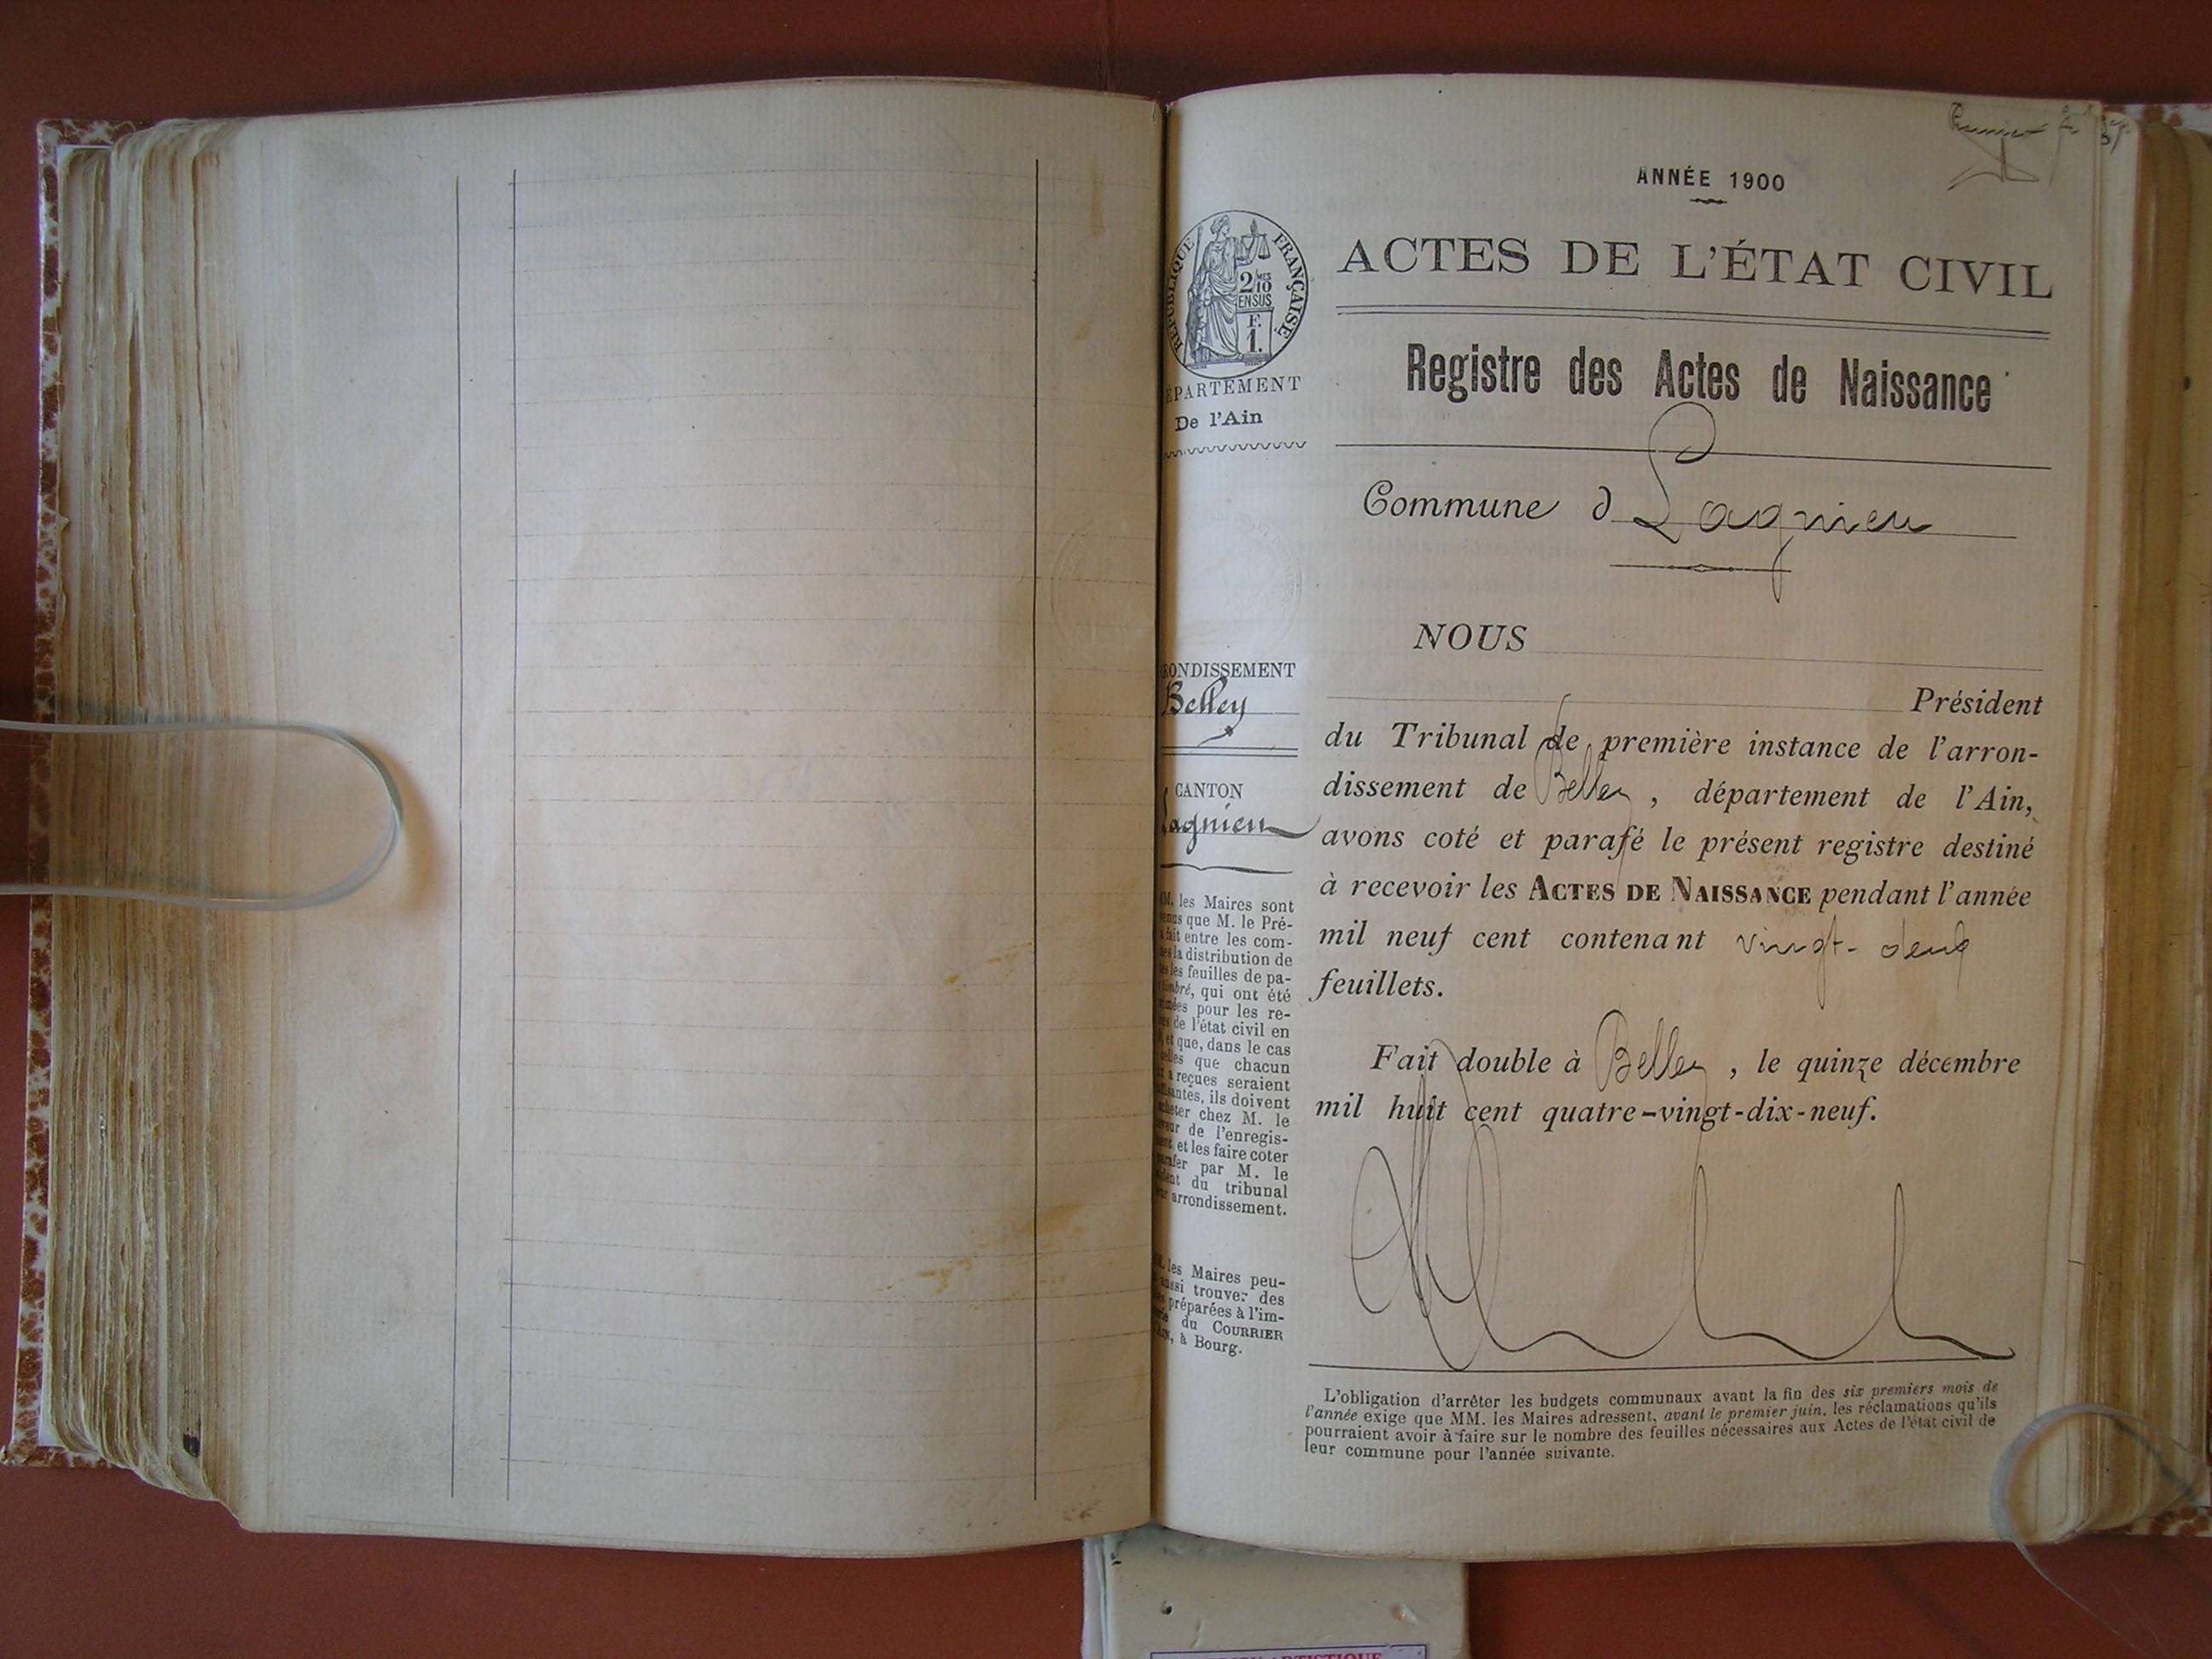 ANNÉE 1900
ACTES DE L'ÉTAT CIVIL
Registre des Actes de Naissance
Commune d Lagnieu
RÉPUBLIQUE FRANÇAISE
2/10
EN SUS
F.
1.
ÉPARTEMENT
De l'Ain
RONDISSEMENT
Belley
CANTON
Lagnieu
M. les Maires sont
que M. le Pré-
fait entre les com-
la distribution de
les feuilles de pa-
mbré, qui ont été
pour les re-
de l'état civil en
et que, dans le cas
que chacun
reçues seraient
santes, ils doivent
cheter chez M. le
de l'enregis-
et les faire coter
par M. le
du tribunal
arrondissement.
les Maires peu-
ussi trouver des
préparées à l'im-
du COURRIER
à Bourg.
NOUS
Président
du Tribunal de première instance de l'arron-
dissement de Belley , département de l'Ain,
avons coté et parafé le présent registre destiné
à recevoir les ACTES DE NAISSANCE pendant l'année
mil neuf cent contenant vingt-deux
feuillets.
Fait double à Belley , le quinze décembre
mil huit cent quatre-vingt-dix-neuf.
L'obligation d'arrêter les budgets communaux avant la fin des six premiers mois de
l'année exige que MM. les Maires adressent, avant le premier juin, les réclamations qu'ils
pourraient avoir à faire sur le nombre des feuilles nécessaires aux Actes de l'état civil de
leur commune pour l'année suivante.